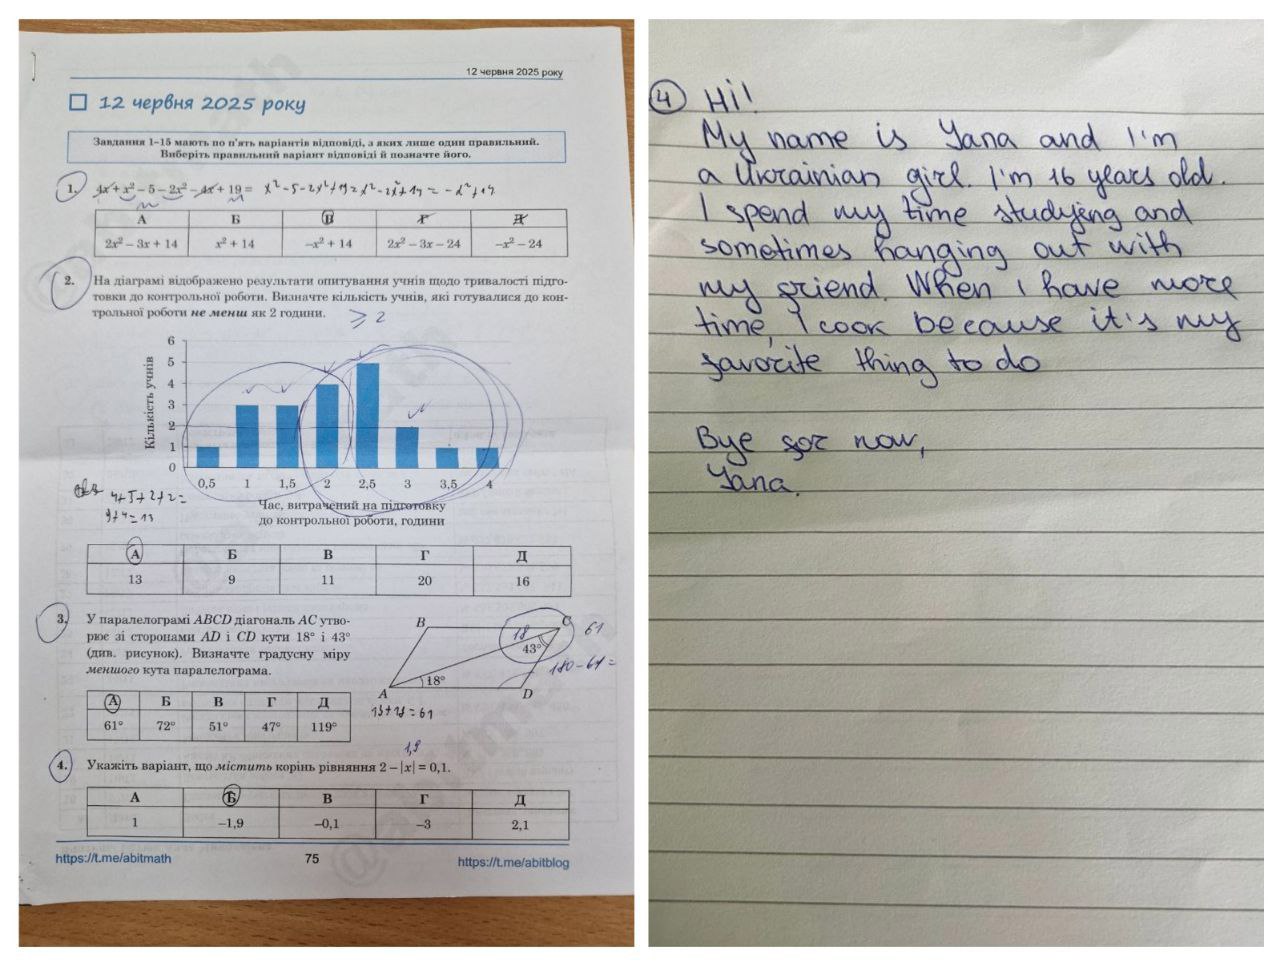 12 червня 2025 року
12 червня 2025 року
Завдання 1–15 мають по п'ять варіантів відповіді, з яких лише один правильний.
Виберіть правильний варіант відповіді й позначте його.
1. 4x + x² – 5 – 2x² – 4x + 19 = x² – 5 – 2x² + 19 = x² – 2x² + 14 = – x² + 14
А Б В Г Д
2x² – 3x + 14 x² + 14 –x² + 14 2x² – 3x – 24 –x² – 24
2. На діаграмі відображено результати опитування учнів щодо тривалості підго-
товки до контрольної роботи. Визначте кількість учнів, які готувалися до кон-
трольної роботи не менш як 2 години.
≥ 2
Кількість учнів
6
5
4
3
2
1
0
0,5 1 1,5 2 2,5 3 3,5 4
4+5+2+2=
9+4=13
Час, витрачений на підготовку
до контрольної роботи, години
А Б В Г Д
13 9 11 20 16
3. У паралелограмі ABCD діагональ AC утво-
рює зі сторонами AD і CD кути 18° і 43°
(див. рисунок). Визначте градусну міру
меншого кута паралелограма.
B C 61
18
43°
180 – 61 =
18°
A D
А Б В Г Д
61° 72° 51° 47° 119°
1,9
4. Укажіть варіант, що містить корінь рівняння 2 – |x| = 0,1.
А Б В Г Д
1 –1,9 –0,1 –3 2,1
https://t.me/abitmath 75 https://t.me/abitblog
4 Hi!
My name is Yana and I'm
a Ukrainian girl. I'm 16 years old.
I spend my time studying and
sometimes hanging out with
my friend. When I have more
time, I cook because it's my
favorite thing to do
Bye for now,
Yana.